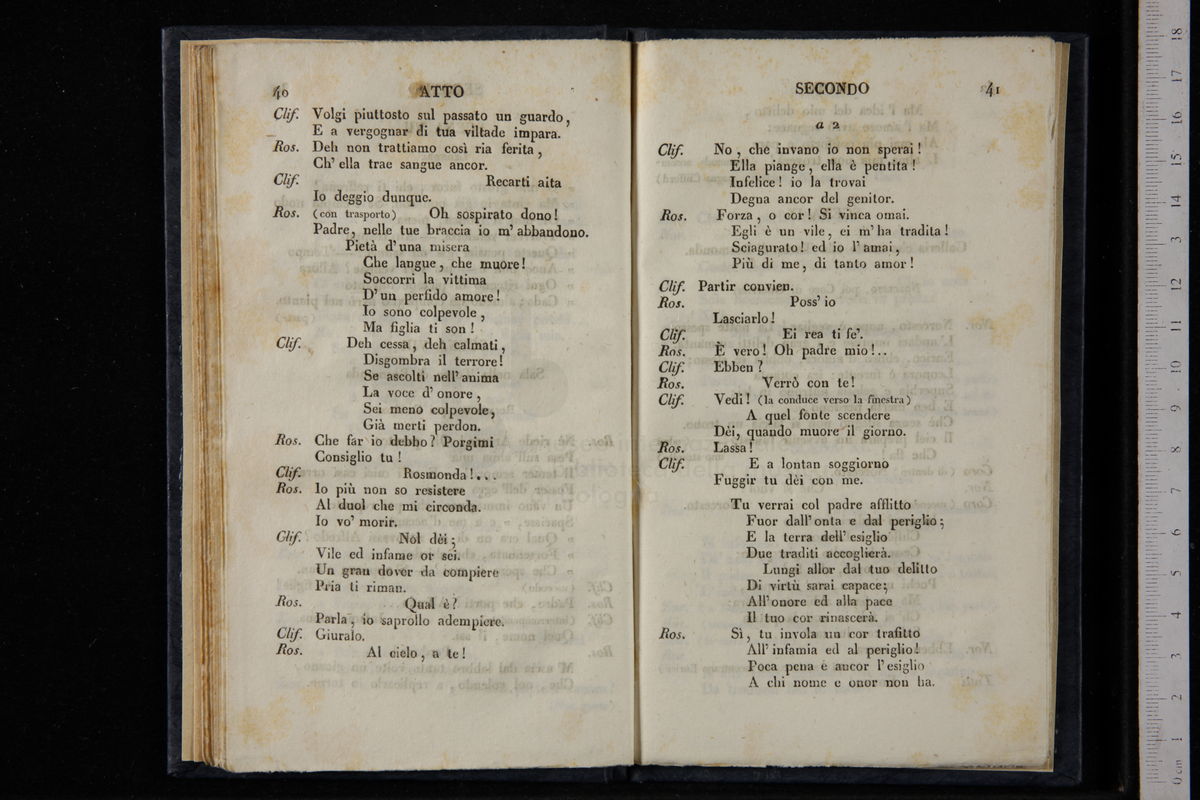 40 ATTO
Clif. Volgi piuttosto sul passato un guardo,
E a vergognar di tua viltade impara.
Ros. Deh non trattiamo così ria ferita,
Ch' ella trae sangue ancor.
Clif. Recarti aita
Io deggio dunque.
Ros. (con trasporto) Oh sospirato dono!
Padre, nelle tue braccia io m' abbandono.
Pietà d' una misera
Che langue, che muore!
Soccorri la vittima
D' un perfido amore!
Io sono colpevole,
Ma figlia ti son!
Clif. Deh cessa, deh calmati,
Disgombra il terrore!
Se ascolti nell' anima
La voce d' onore,
Sei meno colpevole,
Già merti perdon.
Ros. Che far io debbo? Porgimi
Consiglio tu!
Clif. Rosmonda!...
Ros. Io più non so resistere
Al duol che mi circonda.
Io vo' morir.
Clif. Nol dèi;
Vile ed infame or sei.
Un gran dover da compiere
Pria ti riman.
Ros. Qual è?
Parla, io saprollo adempiere.
Clif. Giuralo.
Ros. Al cielo, a te!
SECONDO 41
a 2
Clif. No, che invano io non sperai!
Ella piange, ella è pentita!
Infelice! io la trovai
Degna ancor del genitor.
Ros. Forza, o cor! Si vinca omai.
Egli è un vile, ei m' ha tradita!
Sciagurato! ed io l' amai,
Più di me, di tanto amor!
Clif. Partir convien.
Ros. Poss' io
Lasciarlo!
Clif. Ei rea ti fe'.
Ros. È vero! Oh padre mio!..
Clif. Ebben?
Ros. Verrò con te!
Clif. Vedi! (la conduce verso la finestra)
A quel fonte scendere
Dèi, quando muore il giorno.
Ros. Lassa!
Clif. E a lontan soggiorno
Fuggir tu dèi con me.
Tu verrai col padre afflitto
Fuor dall' onta e dal periglio;
E la terra dell' esiglio
Due traditi accoglierà.
Lungi allor dal tuo delitto
Di virtù sarai capace;
All' onore ed alla pace
Il tuo cor rinascerà.
Ros. Sì, tu invola un cor trafitto
All' infamia ed al periglio!
Poca pena è ancor l' esiglio
A chi nome e onor non ha.